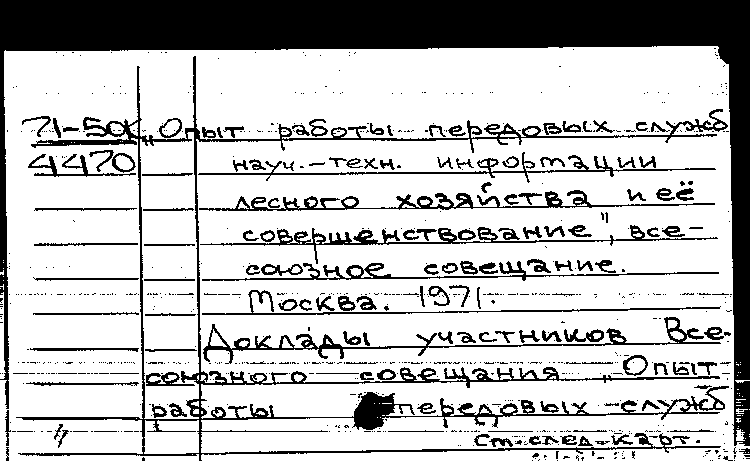 71-50К „Опыт работы передовых служб
4470 науч.-техн. информации
лесного хозяйства и её
совершенствование", все-
союзное совещание.
Москва. 1971.
Доклады участников Все-
союзного совещания „Опыт
работы передовых служб
См. след. карт.